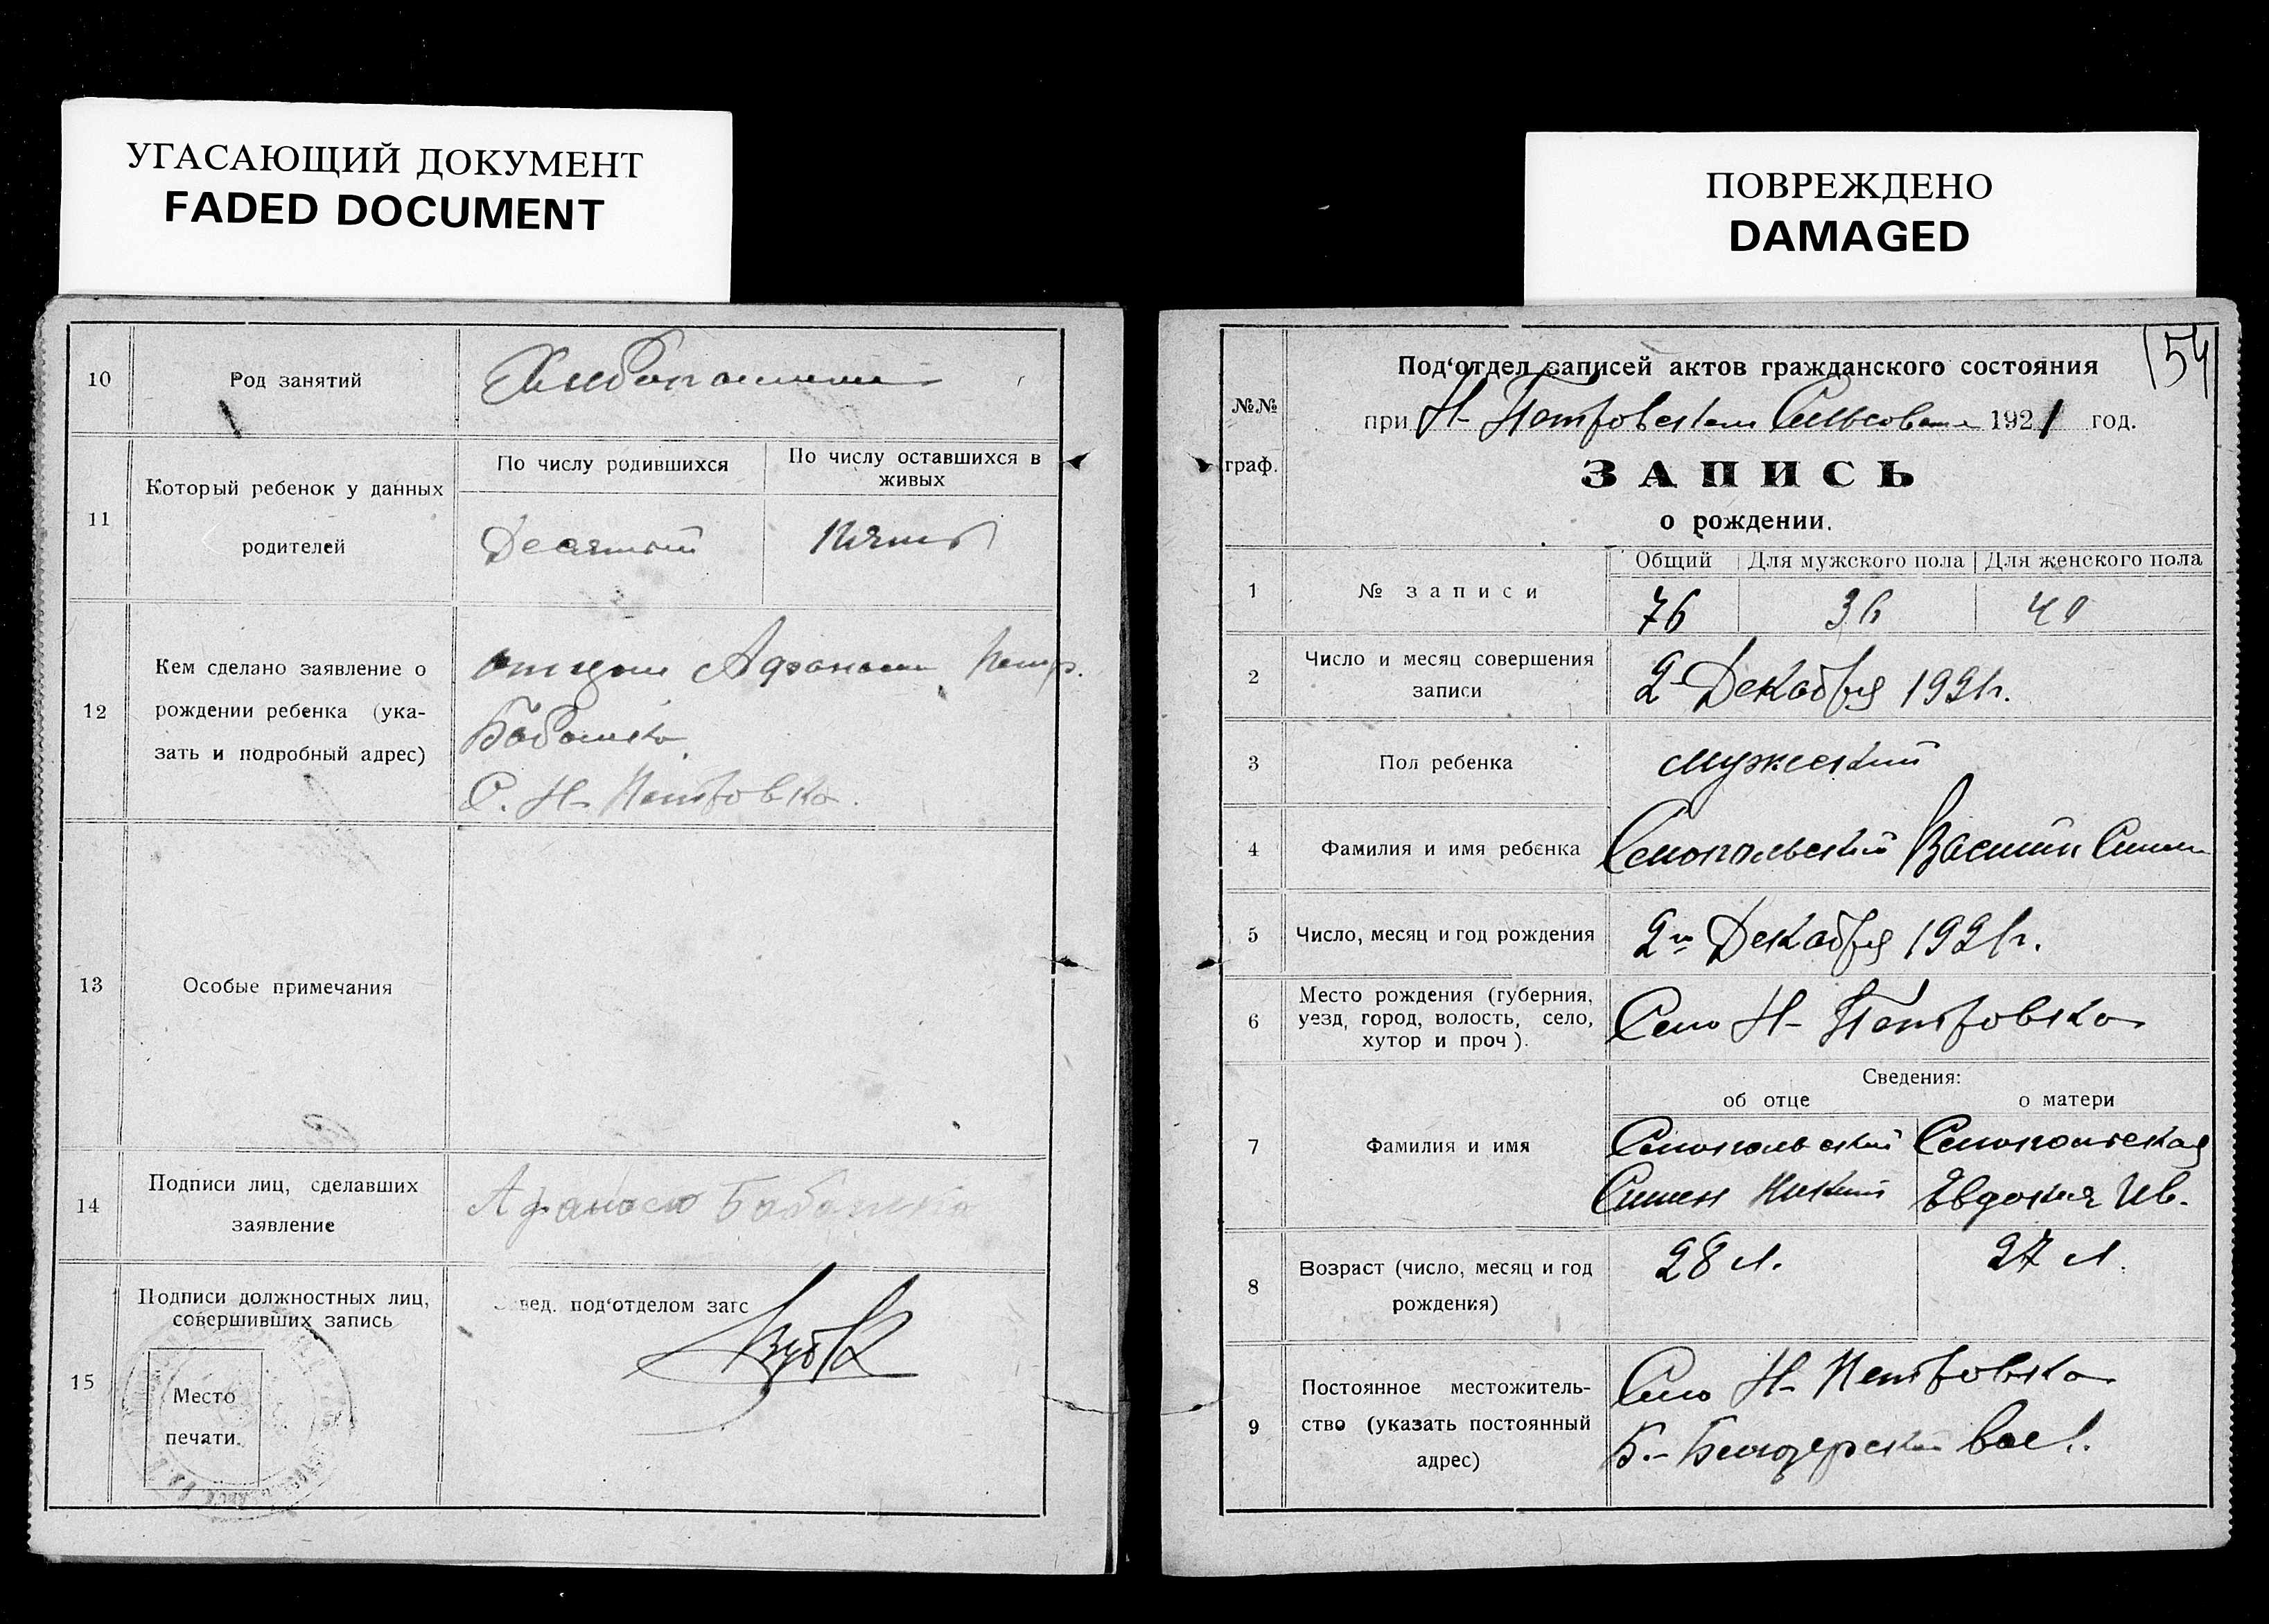 УГАСАЮЩИЙ ДОКУМЕНТ
FADED DOCUMENT
ПОВРЕЖДЕНО
DAMAGED
10
Род занятий
11
Который ребенок у данных
родителей
По числу родившихся
По числу оставшихся в
живых
Десятый
Пять
12
Кем сделано заявление о
рождении ребенка (ука-
зать и подробный адрес)
отцом Афанасий Петр.
Бабашко
С. Н-Петровка.
13
Особые примечания
14
Подписи лиц, сделавших
заявление
Афанасю Бабашко
15
Подписи должностных лиц,
совершивших запись
Место
печати.
вед. под‘отделом загс
54
№№
граф.
Под‘отдел записей актов гражданского состояния
при Н-Петровском Сельсовете 1921 год.
ЗАПИСЬ
о рождении.
1
№ записи
Общий
Для мужского пола
Для женского пола
76
36
40
2
Число и месяц совершения
записи
2 Декабря 1921г.
3
Пол ребенка
мужеский
4
Фамилия и имя ребенка
Семопольский Василий Симон
5
Число, месяц и год рождения
2го Декабря 1921г.
6
Место рождения (губерния,
уезд, город, волость, село,
хутор и проч).
Село Н-Петровка
Сведения:
об отце
о матери
7
Фамилия и имя
Семопольский
Симон
Семопольская
Евдокия Ив.
8
Возраст (число, месяц и год
рождения)
28 л.
27 л.
9
Постоянное местожитель-
ство (указать постоянный
адрес)
Село Н-Петровка